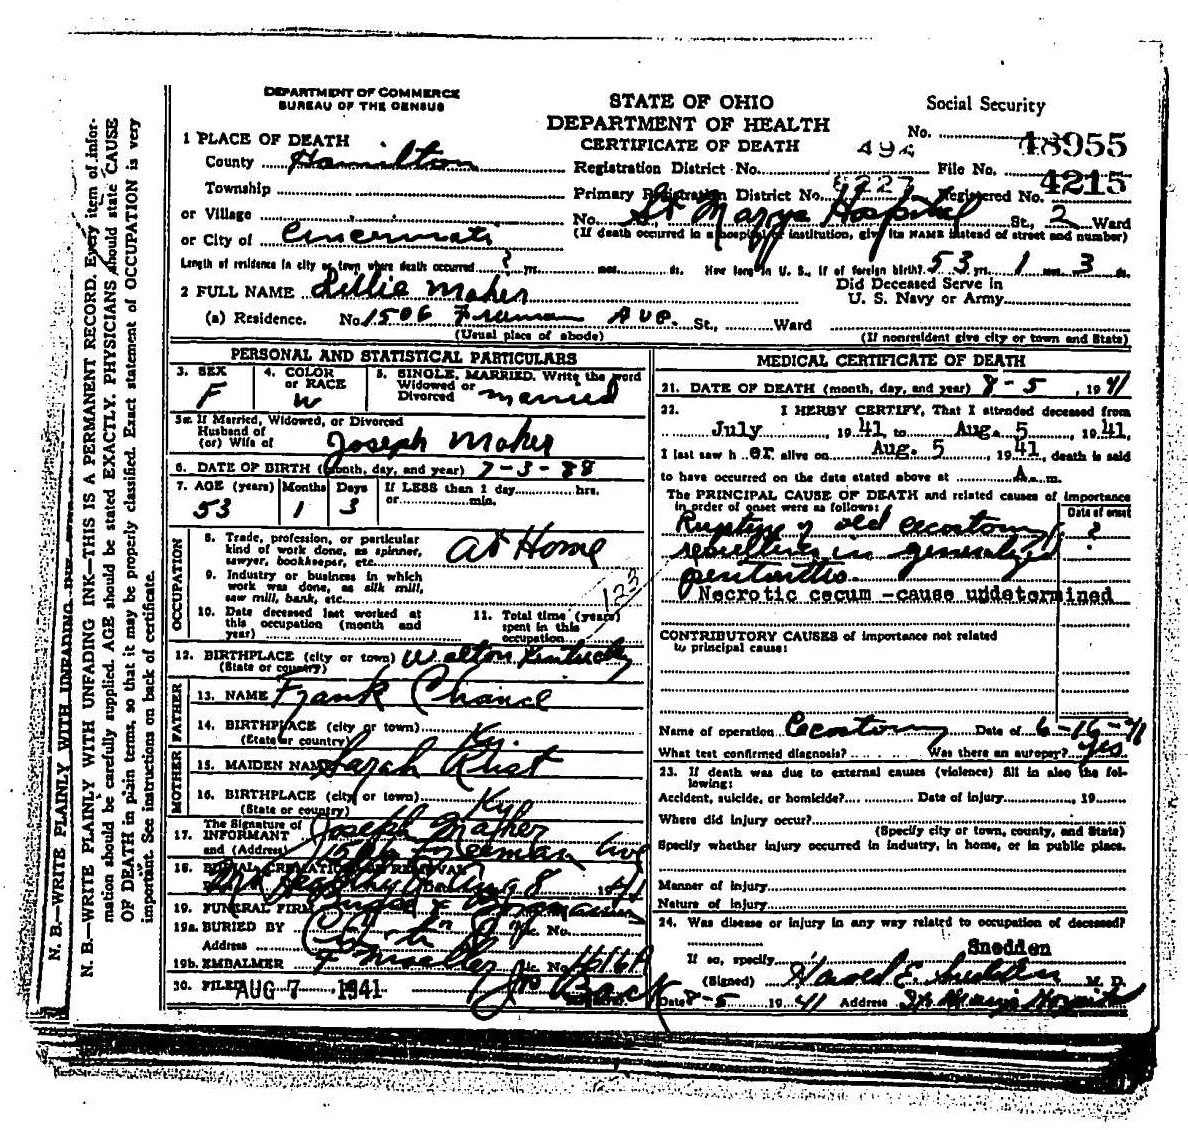 DEPARTMENT OF COMMERCE
BUREAU OF THE CENSUS
STATE OF OHIO
DEPARTMENT OF HEALTH
CERTIFICATE OF DEATH
Social Security
No.
48955
1 PLACE OF DEATH
County Hamilton
Registration District No. 494 File No.
Township
Primary Registration District No. 8227 Registered No. 4215
or Village
No. St Marys Hospital St., 2 Ward
or City of Cincinnati
(If death occurred in a hospital or institution, give its NAME instead of street and number)
Length of residence in city or town where death occurred ? yrs. mos. ds. How long in U. S., if of foreign birth? 53 yrs. 1 mos. 3 ds.
2 FULL NAME Lillie Maher
Did Deceased Serve in
U. S. Navy or Army
(a) Residence. No. 1506 Freeman Ave. St., Ward
(Usual place of abode) (If nonresident give city or town and State)
PERSONAL AND STATISTICAL PARTICULARS
3. SEX F
4. COLOR or RACE W
5. SINGLE, MARRIED, Write the word
Widowed or
Divorced married
5a. If Married, Widowed, or Divorced
Husband of
(or) Wife of Joseph Maher
6. DATE OF BIRTH (month, day, and year) 7-3-88
7. AGE (years) Months Days If LESS than 1 day hrs.
53 1 3 or min.
OCCUPATION
8. Trade, profession, or particular
kind of work done, as spinner,
sawyer, bookkeeper, etc. at Home
9. Industry or business in which
work was done, as silk mill,
saw mill, bank, etc.
123
10. Date deceased last worked at
this occupation (month and
year)
11. Total time (years)
spent in this
occupation
12. BIRTHPLACE (city or town) Walton Kentucky
(State or country)
FATHER
13. NAME Frank Chance
14. BIRTHPLACE (city or town)
(State or country) Ky.
MOTHER
15. MAIDEN NAME Sarah Rust
16. BIRTHPLACE (city or town) Ky
(State or country)
The Signature of
17. INFORMANT Joseph Maher
and (Address) 1506 Freeman Ave
18. BURIAL, CREMATION, OR REMOVAL
Aug 8 1941
19. FUNERAL FIRM
19a. BURIED BY Lic. No.
Address
19b. EMBALMER F Moeller Lic. No. 4616A
20. FILED AUG 7 1941
MEDICAL CERTIFICATE OF DEATH
21. DATE OF DEATH (month, day, and year) 8-5, 1941
22. I HERBY CERTIFY, That I attended deceased from
July, 1941 to Aug. 5, 1941,
I last saw her alive on Aug. 5, 1941, death is said
to have occurred on the date stated above at A. m.
The PRINCIPAL CAUSE OF DEATH and related causes of importance
in order of onset were as follows:
Date of onset
Rupture of old cecostomy ?
resulting in generalized
peritonitis.
Necrotic cecum -cause undetermined
CONTRIBUTORY CAUSES of importance not related
to principal cause:
Name of operation Cecostomy Date of 6-16-41
What test confirmed diagnosis? Was there an autopsy? yes
23. If death was due to external causes (violence) fill in also the fol-
lowing:
Accident, suicide, or homicide? Date of injury , 19
Where did injury occur?
(Specify city or town, county, and State)
Specify whether injury occurred in industry, in home, or in public place.
Manner of injury
Nature of injury
24. Was disease or injury in any way related to occupation of deceased?
If so, specify
Snedden
(Signed) Harold E. Snedden M. D.
Date 8-5 1941 Address St Mary's Hospital
N. B.—WRITE PLAINLY WITH UNFADING INK—THIS IS A PERMANENT RECORD. Every item of infor-
mation should be carefully supplied. AGE should be stated EXACTLY. PHYSICIANS should state CAUSE
OF DEATH in plain terms, so that it may be properly classified. Exact statement of OCCUPATION is very
important. See instructions on back of certificate.
N. B.—WRITE PLAINLY WITH UNFADING